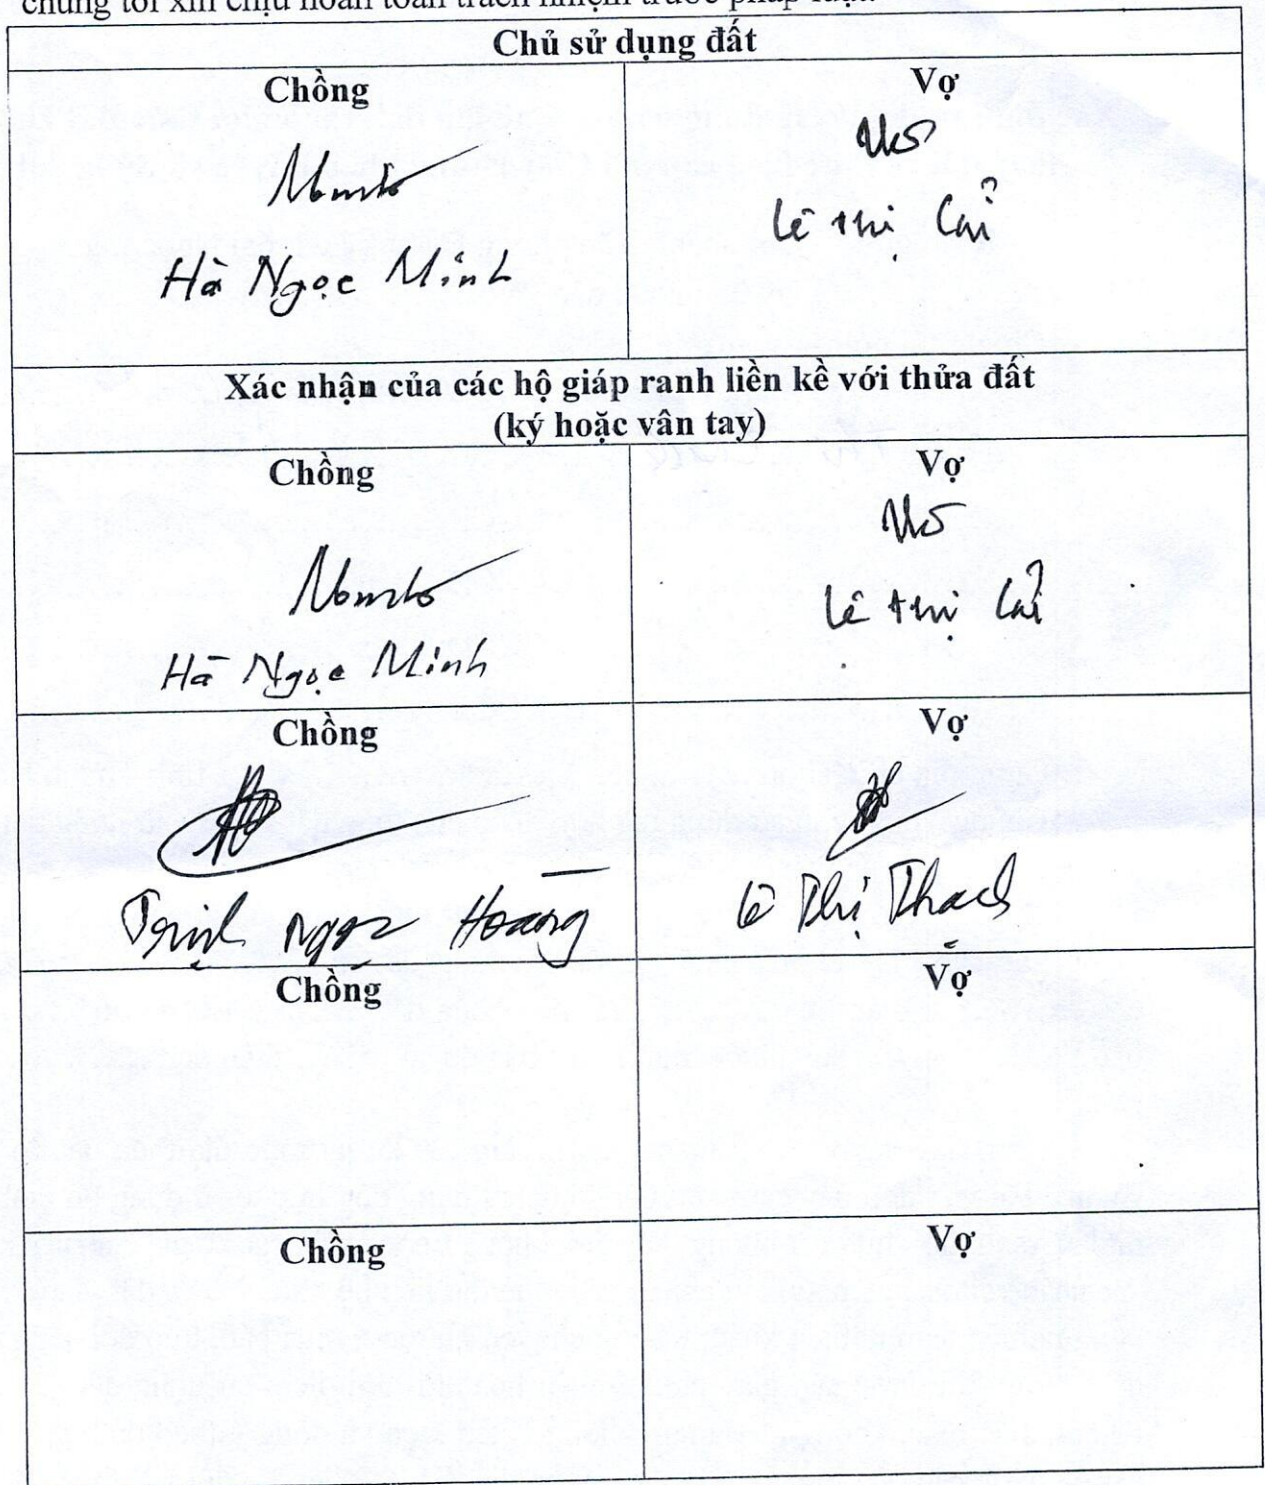 chúng tôi xin chịu hoàn toàn trách nhiệm trước pháp luật.
Chủ sử dụng đất
Chồng
Vợ
Hà Ngọc Minh
Lê Thị Cải
Xác nhận của các hộ giáp ranh liền kề với thửa đất
(ký hoặc vân tay)
Chồng
Vợ
Hà Ngọc Minh
Lê Thị Cải
Chồng
Vợ
Trịnh Ngọc Hoàng
Lê Thị Thạch
Chồng
Vợ
Chồng
Vợ